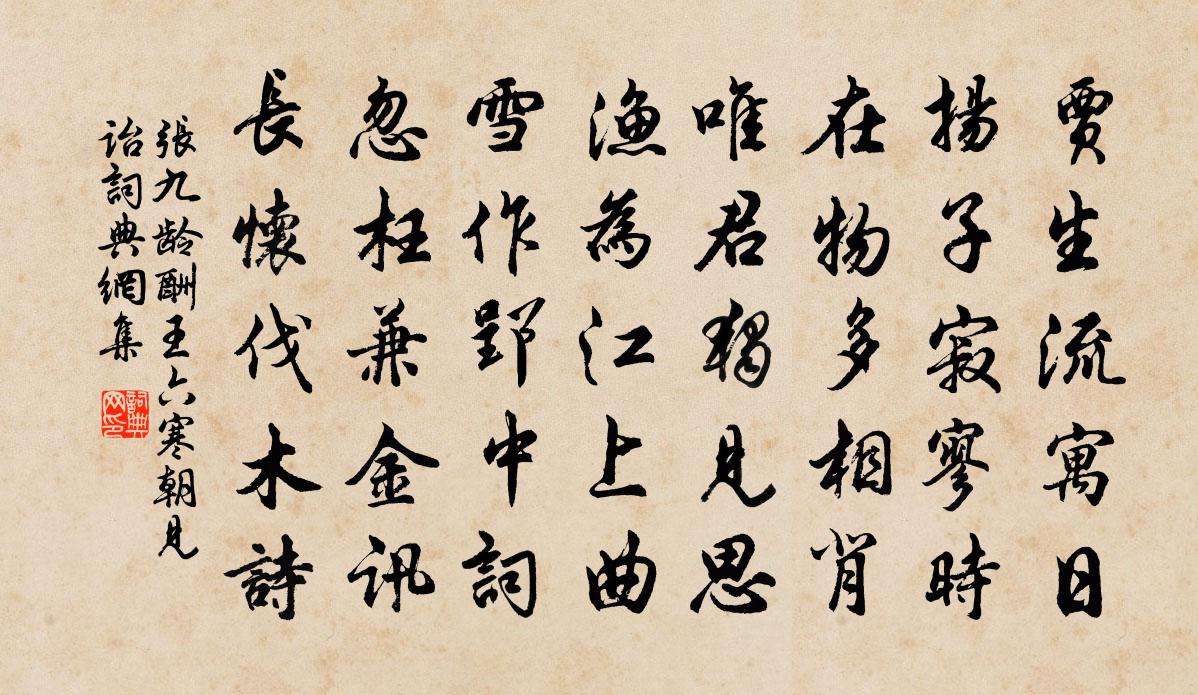 賈生流寓日
揚子寂寥時
在物多相背
唯君獨見思
漁為江上曲
雪作郢中詞
忽枉兼金訊
長懷伐木詩
張九齡酬王六寒朝見
詒詞典網集
詞典网印